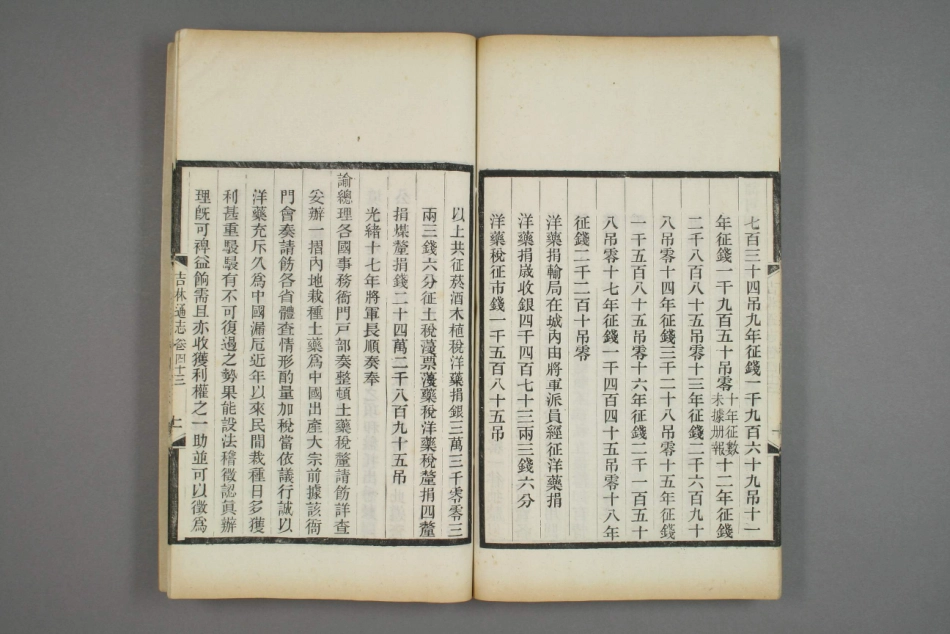 七百三十四吊九年征錢一千九百六十九吊十一
年征錢一千九百五十吊零十年征數未據册報十二年征錢
二千八百八十五吊零十三年征錢二千六百九十
八吊零十四年征錢三千二十八吊零十五年征錢
一千五百八十五吊零十六年征錢二千一百五十
八吊零十七年征錢一千四百四十五吊零十八年
征錢二千二百十吊零
洋藥捐輸局在城內由將軍派員經征洋藥捐
洋藥捐歲收銀四千四百七十三兩三錢六分
洋藥稅征市錢一千五百八十五吊
以上共征菸酒木植稅洋藥捐銀三萬三千零零三
兩三錢六分征土稅薓票薓藥稅洋藥稅釐捐四釐
捐煤釐捐錢二十四萬二千八百九十五吊
光緒十七年將軍長順奏奉
諭總理各國事務衙門戸部奏整頓土藥稅釐請飭詳查
妥辦一摺內地栽種土藥爲中國出產大宗前據該衙
門會奏請飭各省體查情形酌量加稅當依議行誠以
洋藥充斥久爲中國漏卮近年以來民間栽種日多獲
利甚重駸駸有不可復遏之勢果能設法稽徵認眞辦
理既可裨益餉需且亦收獲利權之一助並可以徵爲
吉林通志卷四十三